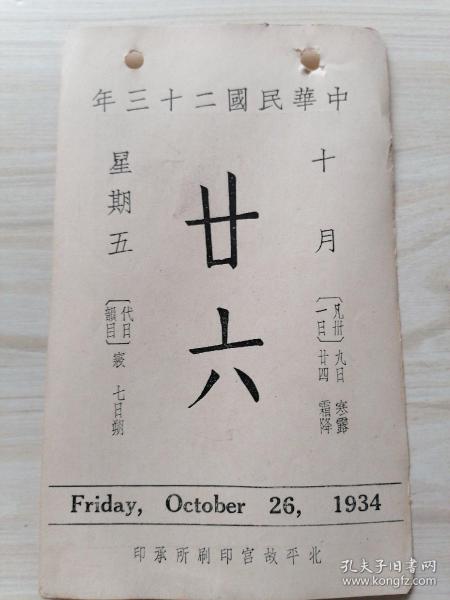 中華民國二十三年
十月
〔凡卅一日〕
九日 寒露
廿四 霜降
廿六
星期五
〔代日韻目〕寢
七日朔
Friday, October 26, 1934
北平故宮印刷所承印
孔夫子旧书网
www.kongfz.com